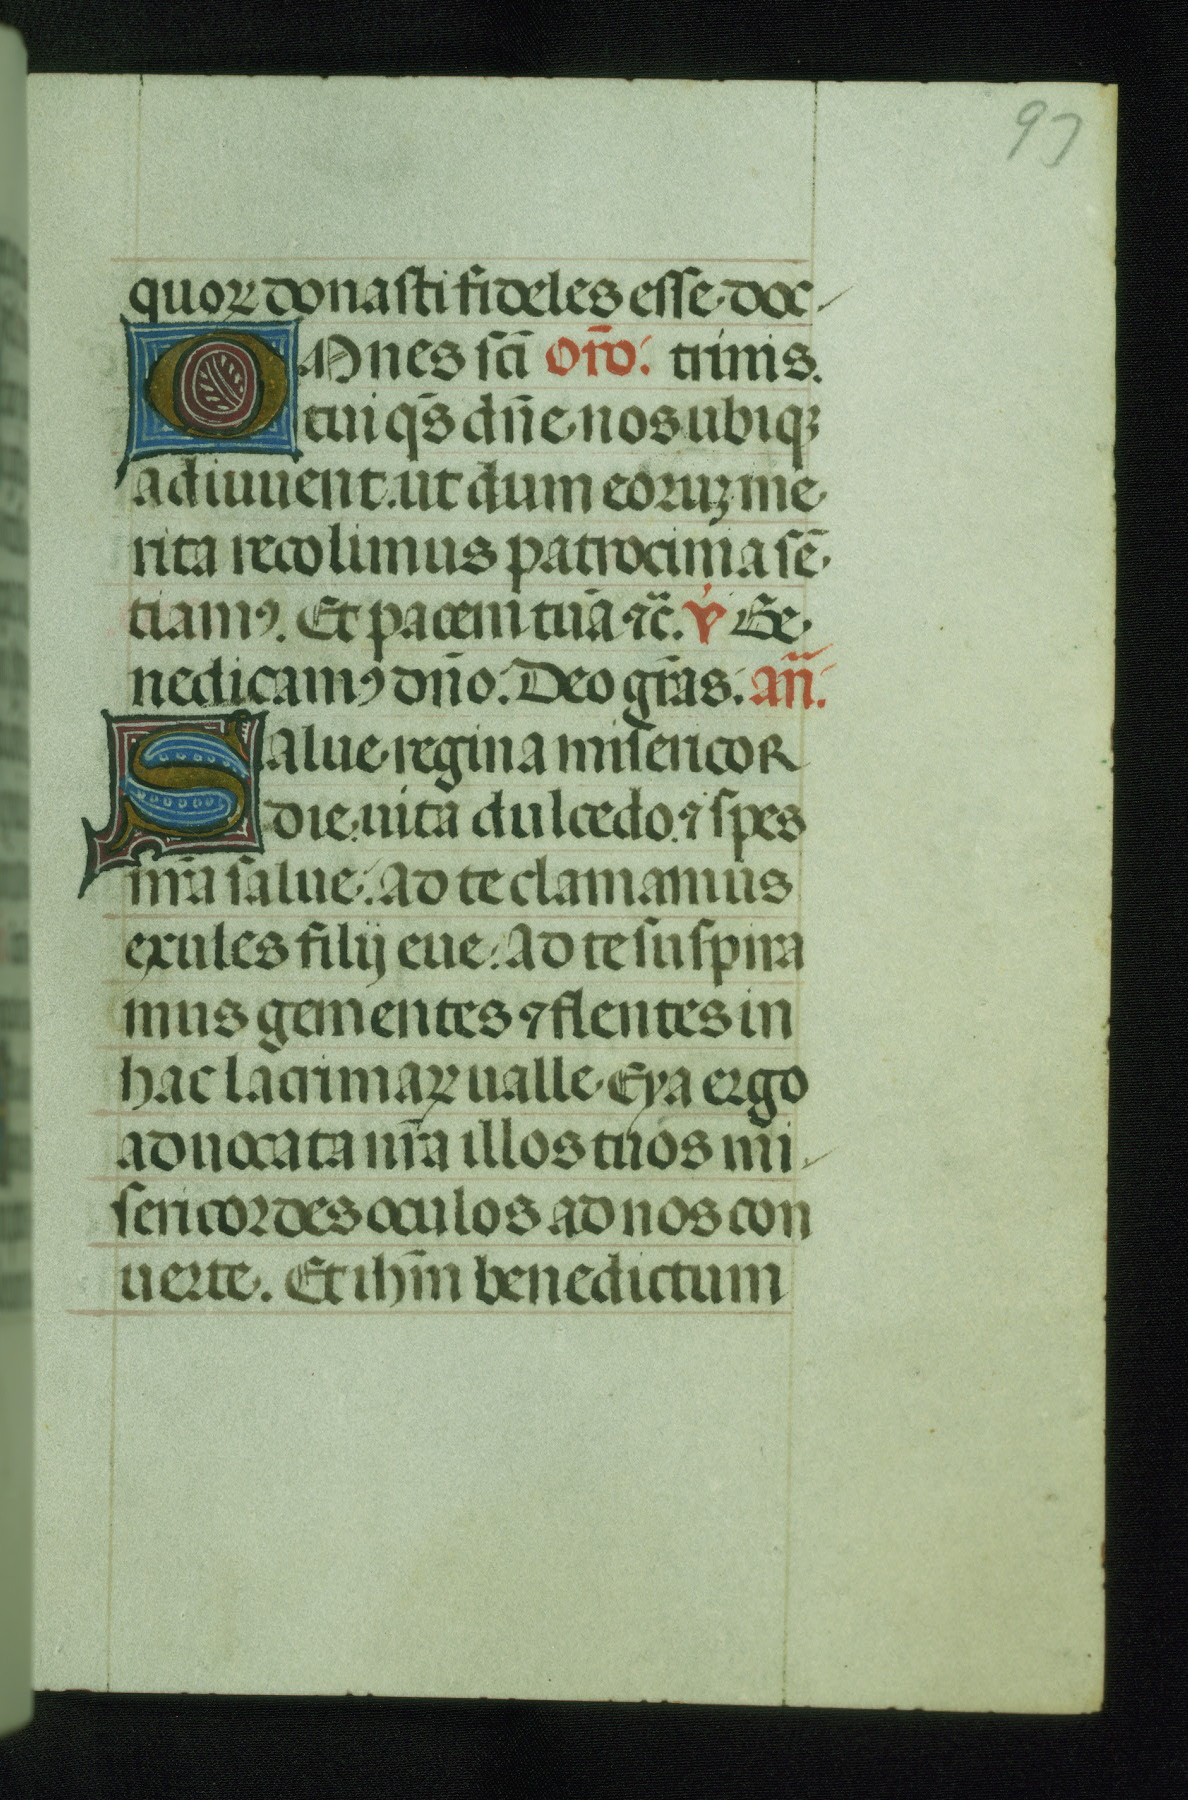 97
quoꝝ donasti fideles esse doc
Omnes sc̄i or̄o. trinis.
tui qs̄ dn̄e nos ubiqꝫ
adiuuent. ut dum eoruꝫ me
rita recolimus patrocinia sē
tiamꝰ. Et pacem tuā ⁊c̄. ℣ Be
nedicamꝰ dn̄o. Deo gr̄as. an̄.
Salue regina misericor
die uita dulcedo. ⁊ spes
nr̄a salue. Ad te clamamus
exules filij eue. Ad te suspira
mus gementes ⁊ flentes in
hac lacrimaꝝ ualle. Eya ergo
aduocata nr̄a illos tuos mi
sericordes oculos ad nos con
uerte. Et ihm̄ benedictum